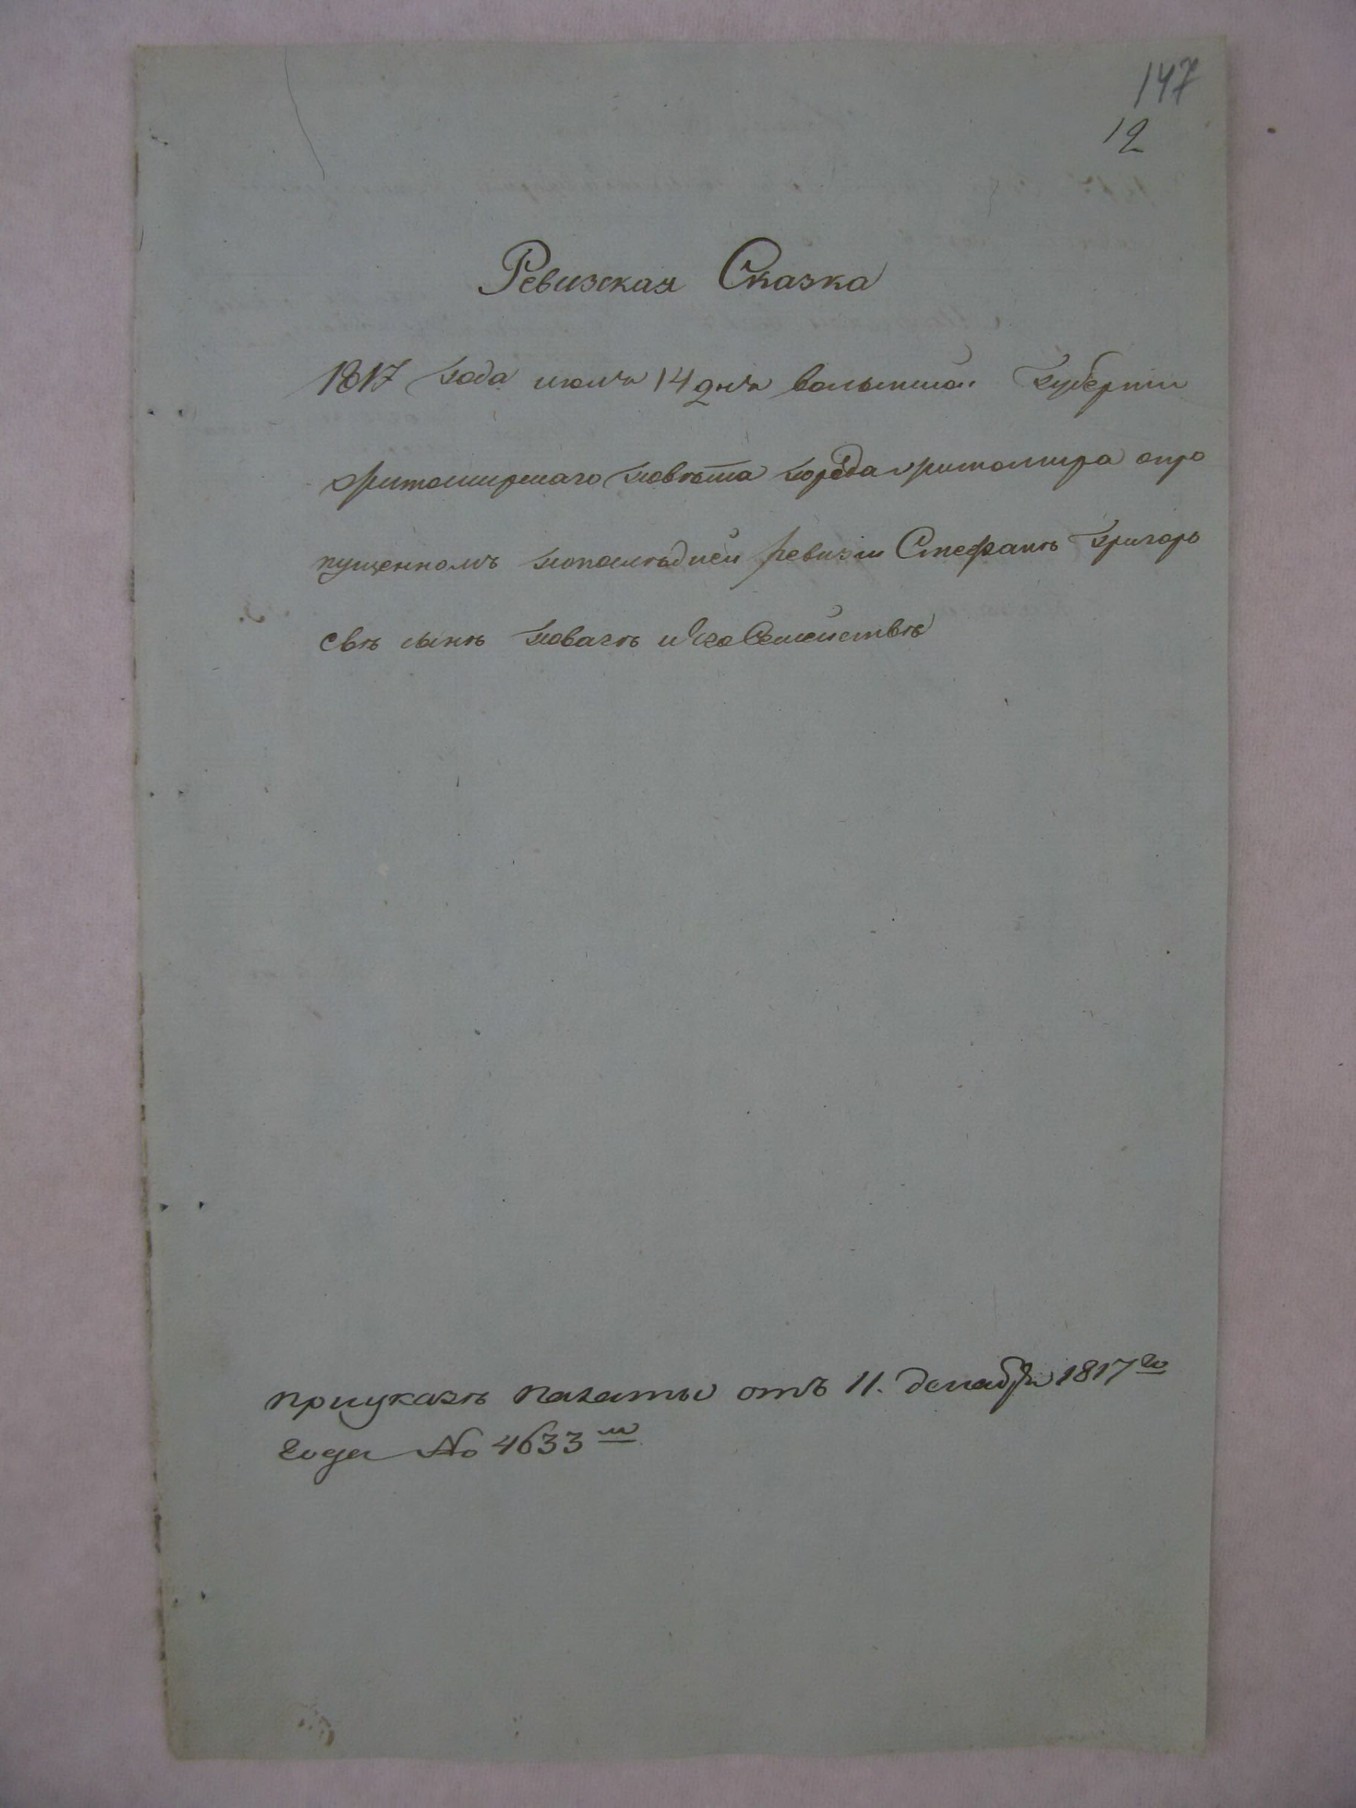 147
12
Ревизская Сказка
1817 года июля 14 дня волынской губернии
житомирскаго повѣта города житомира опро
пущенномъ попослѣдней ревизіи Стефанѣ григорь
евѣ сынѣ ковалѣ и Его Семействѣ
приуказѣ палаты отъ 11. декабря 1817го
года № 4633м